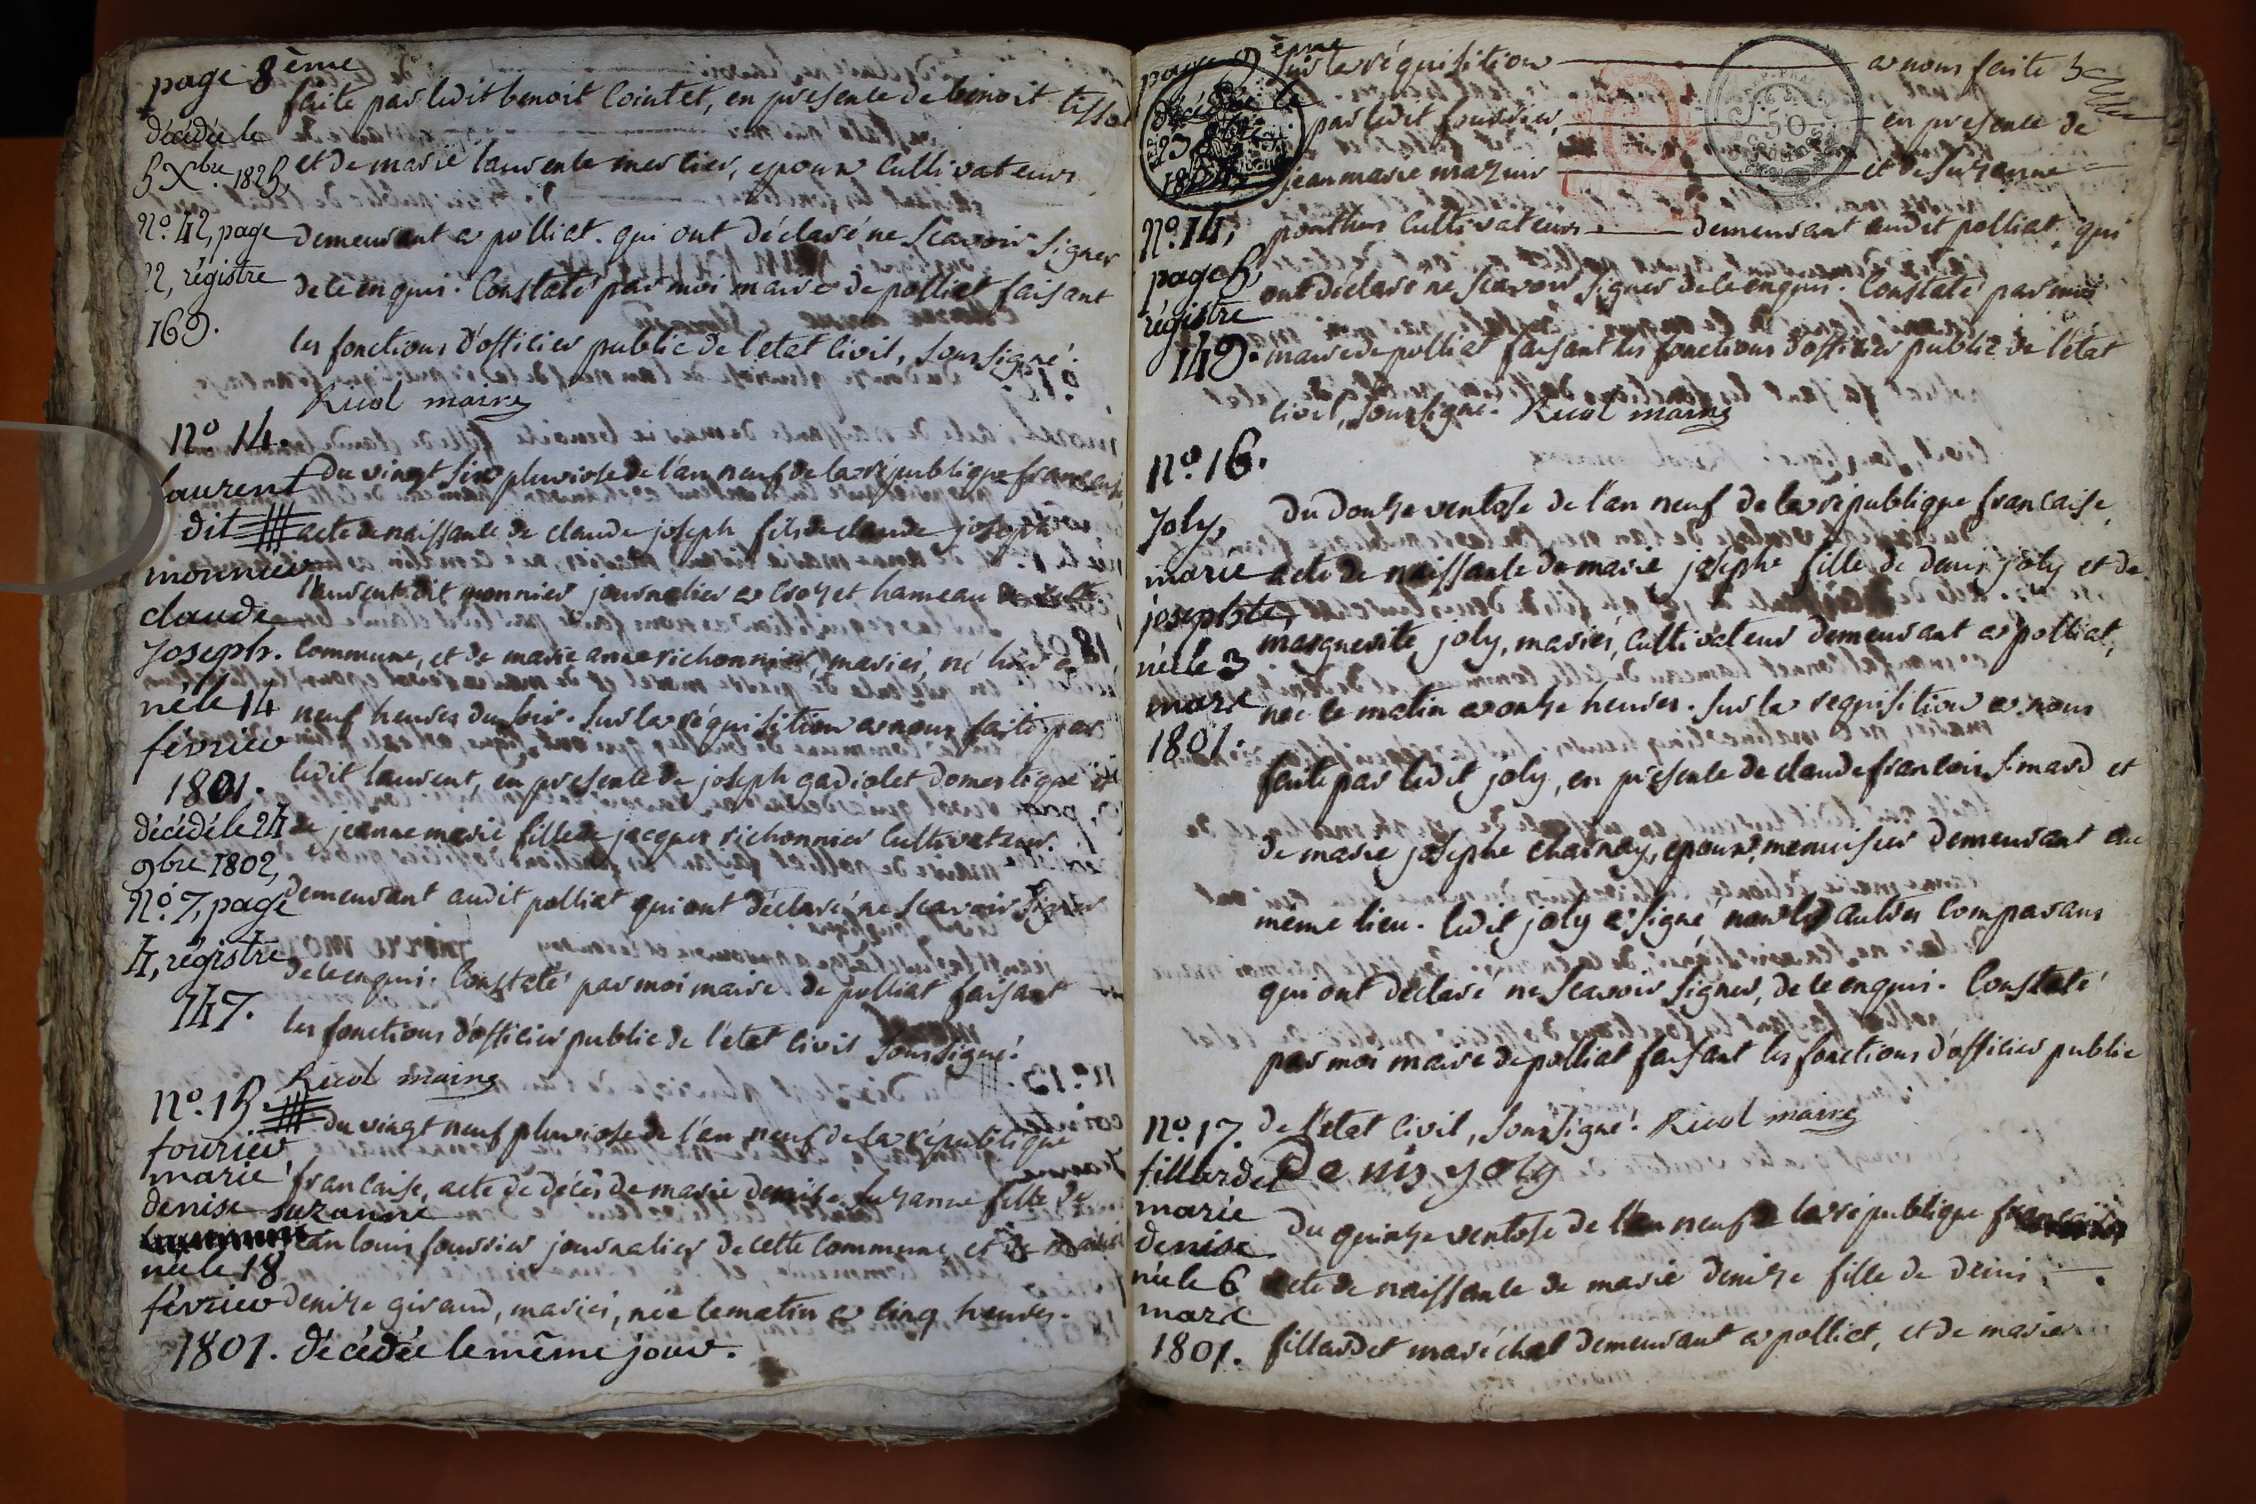 page 8ème
faite par ledit benoit Cointet, en presence de benoit tissot
décédée le
5 Xbre. 1825,
et de marie laurente mercier, epoux Cultivateurs
N°. 42, page
demeurant a polliat. qui ont déclaré ne Scavoir Signer
22, régistre
de ce enquis. Constaté par moi maire de polliat faisant
169.
les fonctions d'officier public de l'etat Civil, Soussigné.
Ricol maire
N° 14.
Du vingt six pluviose de l'an neuf de la république francaise
laurent
dit
acte de naissance de claude joseph fils de claude joseph
monnier
laurent dit monnier journalier a Crozet hameau de cette
claude
Joseph.
Commune, et de marie anne richonnier, mariés, né hier a
né le 14
neuf heures du soir. Sur la réquisition a nous faite par
février
1801.
ledit laurent, en presence de joseph gadiolet domestique et
décédé le 24
de jeanne marie fille de jacques richonnier Cultivateur.
9bre 1802,
N°. 7, page
demeurant audit polliat qui ont déclaré ne Scavoir Signer
4, régistre
de ce enquis. Constaté par moi maire de polliat faisant
147.
les fonctions d'officier public de l'état Civil Soussigné.
Ricol maire
N°. 15.
du vingt neuf pluviose de l'an neuf de la république
fourier
marie
francaise, acte de décès de marie denise Suzanne fille de
denise suzanne
jean louis fourrier journalier de cette Commune, et de marie
née le 18
février
denize giraud, mariés, née le matin a cinq heures.
1801. décédée le même jour.
page 9ème
Sur la réquisition a nous faite
décédée le
par ledit fourrier, en presence de
jean marie mazuir et de Suzanne
N°. 14,
ponthus Cultivateurs demeurant audit polliat, qui
page 5,
ont déclaré ne Scavoir Signer de ce enquis. Constaté par moi
régistre
149.
maire de polliat faisant les fonctions d'officier public de l'état
Civil, Soussigné. Ricol maire
N°. 16.
Du Douze ventose de l'an neuf de la république francaise
Joly,
marie
acte de naissance de marie josephe fille de denis joly et de
josephte,
marguerite joly, mariés, Cultivateurs demeurant a polliat,
née le 3
mars
née le matin a onze heures. Sur la requisition a nous
1801.
faite par ledit joly, en présence de claude francois Simard et
de marie josephe charnay, epoux, menuisier demeurant au
meme lieu. ledit joly a signé non les autres Comparans
qui ont déclaré ne Scavoir Signer, de ce enquis. Constaté
par moi maire de polliat faisant les fonctions d'officier public
de l'état Civil, Soussigné. Ricol maire
N°. 17.
Denis joly
fillardet
marie
du quinze ventose de l'an neuf de la république francaise
denise
née le 6
acte de naissance de marie denize fille de denis
mars
1801.
fillardet maréchal demeurant a polliat, et de marie
50